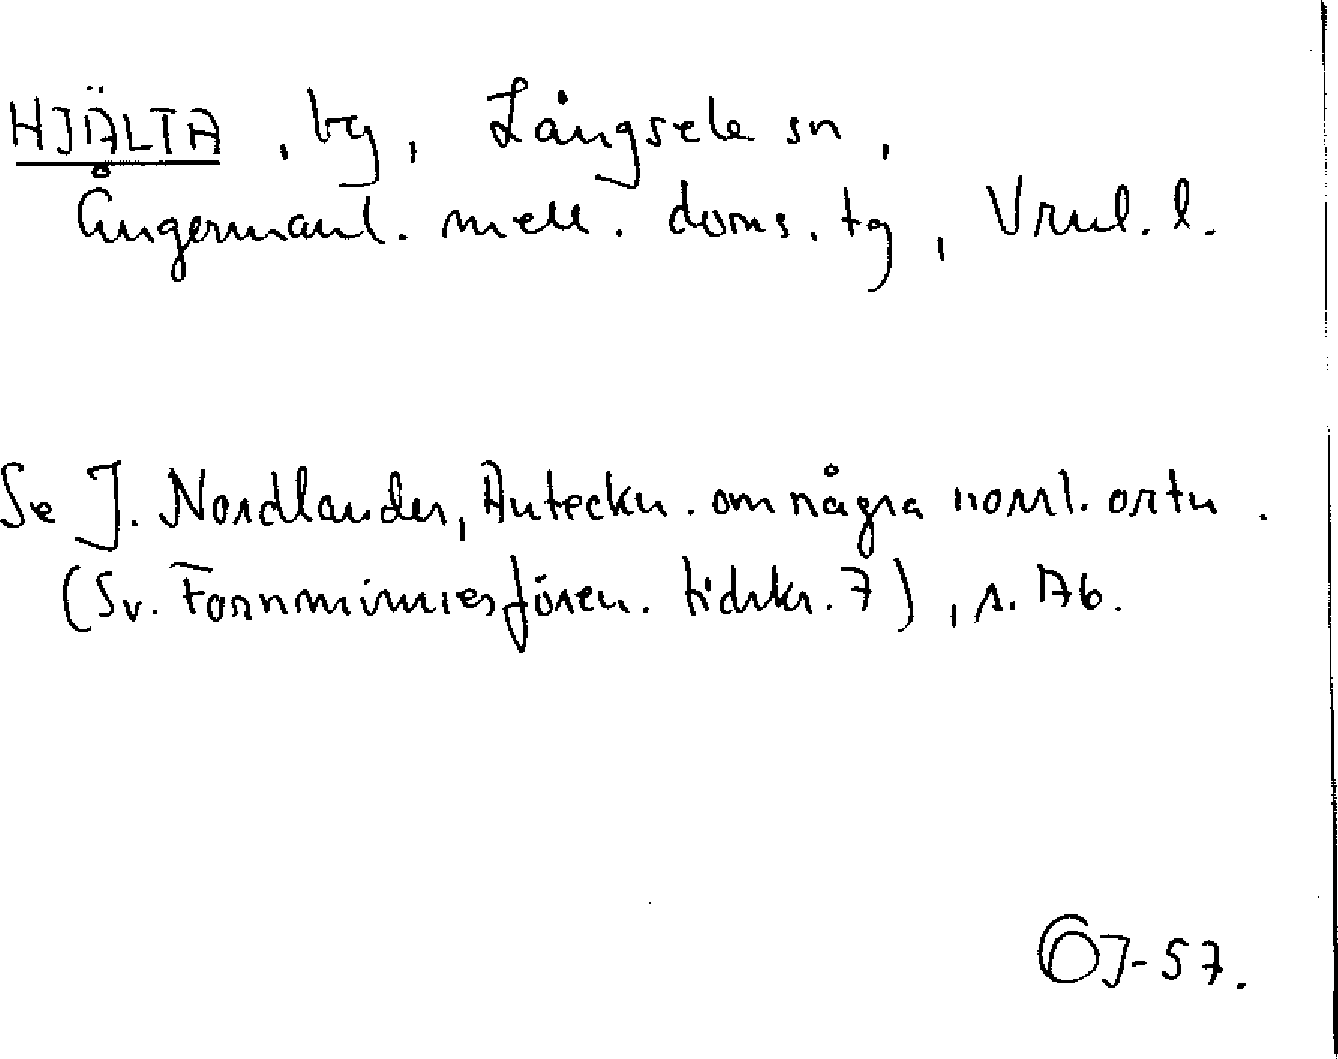 HJÄLTA, by, Långsele sn,
Ångermanl. mell. doms. tg, Vrnl. l.
Se J. Nordlander, Anteckn. om några norrl. ortn.
(Sv. Fornminnesfören. tidskr. 7), s. 176.
OJ-57.